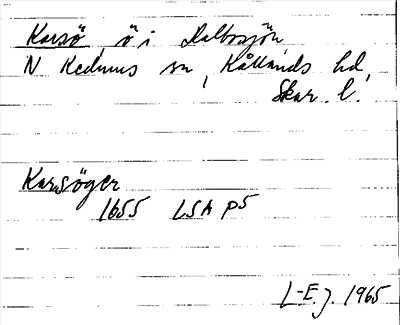 Karsö, ö i Dalbosjön,
N Kedums sn, Kållands hd,
Skar. l.
Karsöger
1655 LSA P5
L-E.J. 1965